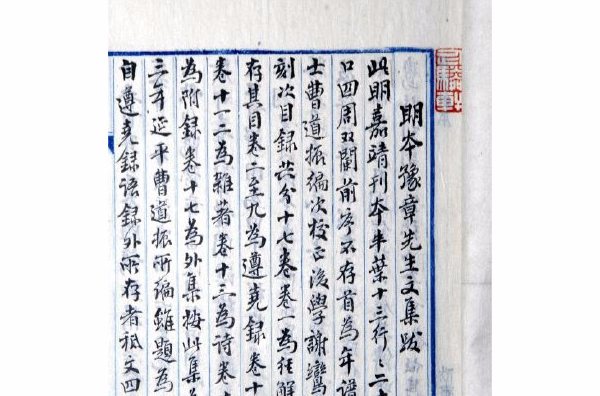 明本豫章先生文集跋
此明嘉靖刊本半葉十三行行二十
口四周双闌前序不存首為年譜
士曹道振編次校正後學謝鸞
刻次目錄共分十七卷卷一為經解
存其目卷二至九為遵堯錄卷十
卷十一二為雜著卷十三為詩卷十
為附錄卷十七為外集按此集為
三年延平曹道振所編雖題為
自遵堯錄語錄外所存者袛文四